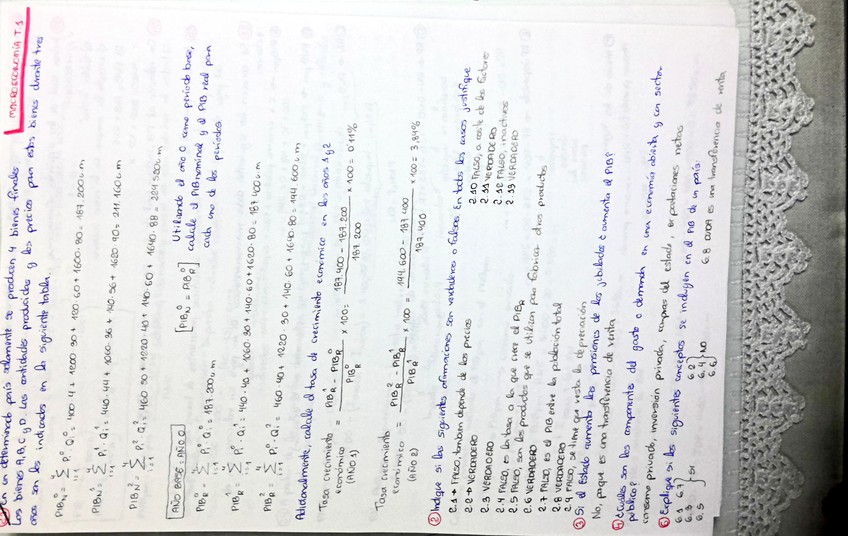 MACROECONOMÍA T.1
En un determinado país solamente se producen 4 bienes finales.
Los bienes A, B, C y D. Las cantidades producidas y los precios para estos bienes durante tres
años son los indicados en la siguiente tabla.
PIB⁰N = Σ Pᵢ⁰·Qᵢ⁰ = 400·4 + 1200·30 + 100·60 + 1600·80 = 187.200 u.m
PIB¹N = Σ Pᵢ¹·Qᵢ¹ = 440·44 + 1060·36 + 140·56 + 1620·90 = 211.160 u.m
PIB²N = Σ Pᵢ²·Qᵢ² = 460·50 + 1220·40 + 140·60 + 1640·88 = 224.520 u.m
AÑO BASE, AÑO 0
[PIB⁰N = PIB⁰R]
Utilizando el año 0 como período base,
calcule el PIB nominal y el PIB real para
cada uno de los períodos.
PIB⁰R = Σ Pᵢ⁰·Qᵢ⁰ = 187.200 u.m
PIB¹R = Σ Pᵢ⁰·Qᵢ¹ = 440·40 + 1060·30 + 140·60 + 1620·80 = 187.400 u.m
PIB²R = Σ Pᵢ⁰·Qᵢ² = 460·40 + 1220·30 + 140·60 + 1640·80 = 194.600 u.m
Adicionalmente, calcule la tasa de crecimiento económico en los años 1 y 2
Tasa crecimiento económico (AÑO 1) = (PIB¹R - PIB⁰R) / PIB⁰R × 100 = (187.400 - 187.200) / 187.200 × 100 = 0'11%
Tasa crecimiento económico (AÑO 2) = (PIB²R - PIB¹R) / PIB¹R × 100 = (194.600 - 187.400) / 187.400 × 100 = 3,84%
② Indique si las siguientes afirmaciones son verdaderas o falsas. En todos los casos justifique
2.1 → FALSO, también depende de los precios
2.2 → VERDADERO
2.3 VERDADERO
2.4 FALSO, es la tasa a la que crece el PIBR
2.5 FALSO, son los productos que se utilizan para fabricar otros productos
2.6 VERDADERO
2.7 FALSO, es el PIB entre la población total
2.8 VERDADERO
2.9 FALSO, se tiene que restar la depreciación
2.10 FALSO, a coste de los factores
2.11 VERDADERO
2.12 FALSO, inactivos
2.13 VERDADERO
③ Si el Estado aumenta las pensiones de los jubilados ¿aumenta el PIB?
No, porque es una transferencia de renta
④ ¿Cuáles son los componentes del gasto o demanda en una economía abierta y con sector
público?
consumo privado, inversión privada, compras del estado, exportaciones netas
⑤ Explique si los siguientes conceptos se incluyen en el PIB de un país.
6.1 6.7
6.3
6.5
} SI
6.2
6.4
6.6
} NO
6.8 es una transferencia de renta